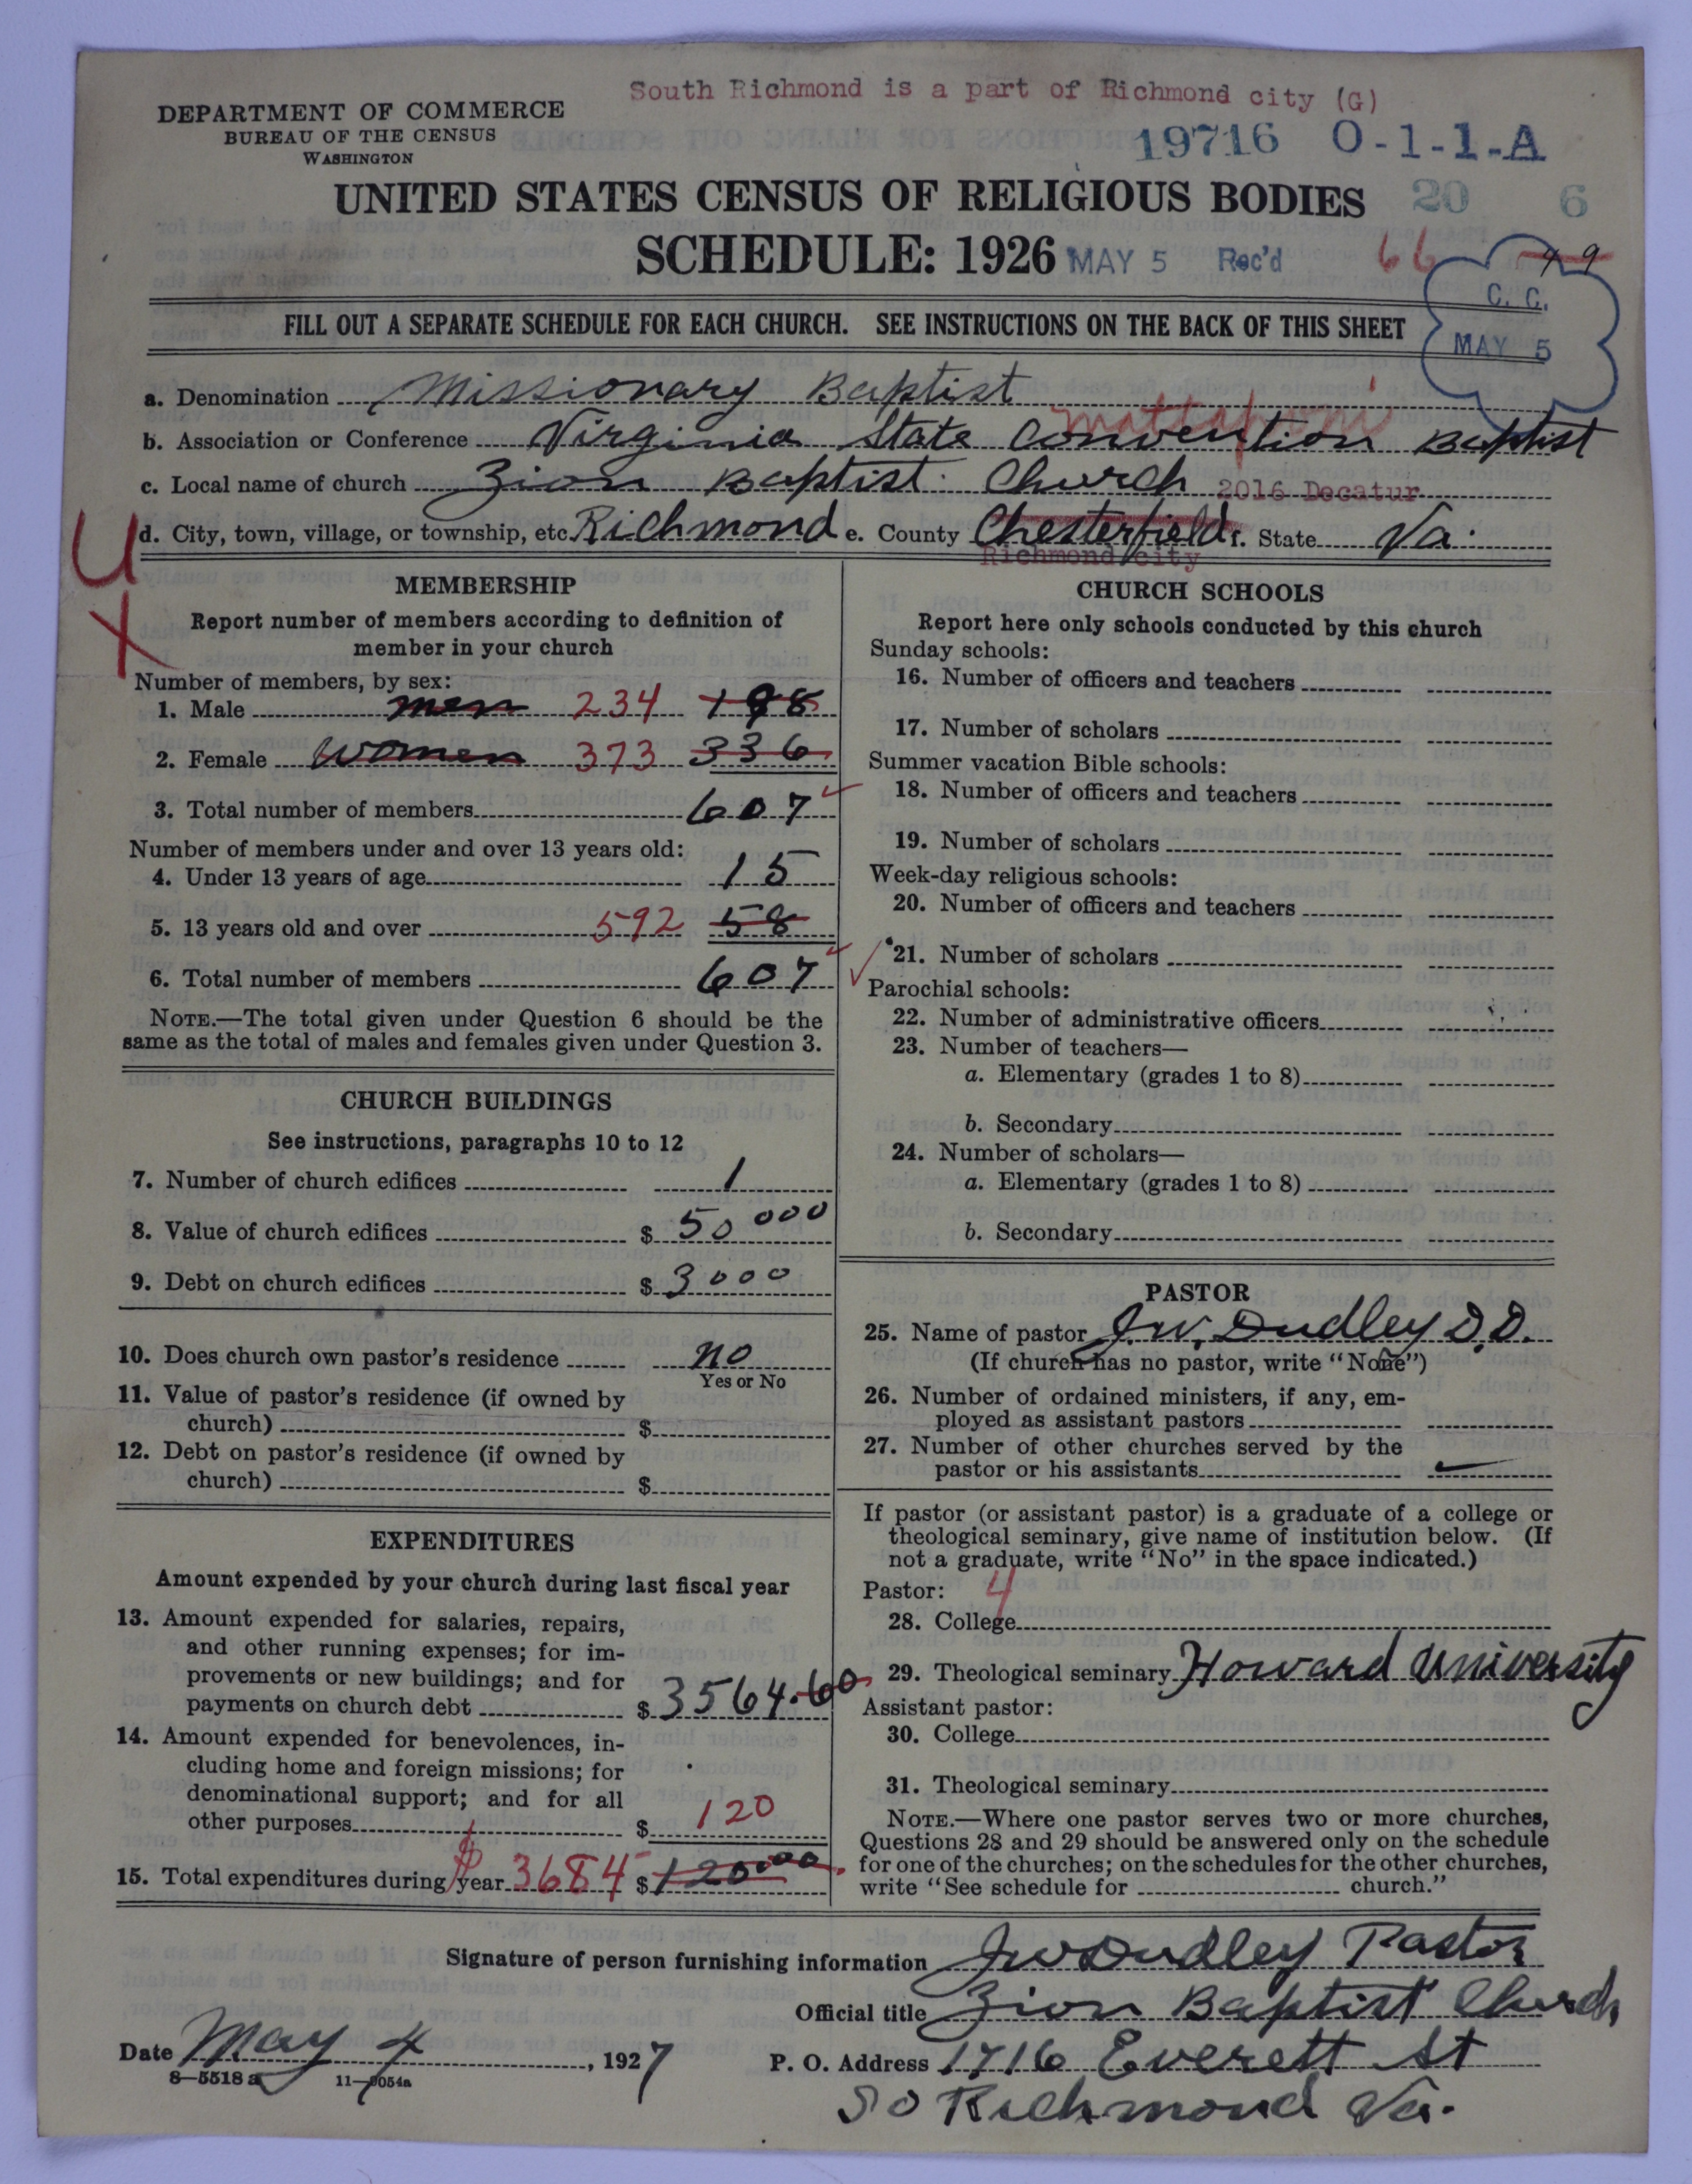 South Richmond is a part of Richmond city (G)
DEPARTMENT OF COMMERCE
BUREAU OF THE CENSUS
WASHINGTON
19716 O-1-1-A
UNITED STATES CENSUS OF RELIGIOUS BODIES
20 6
SCHEDULE: 1926 MAY 5 Rec'd 66 49
C. C.
MAY 5
FILL OUT A SEPARATE SCHEDULE FOR EACH CHURCH. SEE INSTRUCTIONS ON THE BACK OF THIS SHEET
a. Denomination Missionary Baptist
Mattaponi
b. Association or Conference Virginia State Convention Baptist
c. Local name of church Zion Baptist Church 2016 Decatur
d. City, town, village, or township, etc. Richmond e. County Chesterfield f. State Va.
Richmond city
U
X
MEMBERSHIP
Report number of members according to definition of
member in your church
Number of members, by sex:
1. Male men 234 198
2. Female women 373 336
3. Total number of members 607
Number of members under and over 13 years old:
4. Under 13 years of age 15
5. 13 years old and over 592 58
6. Total number of members 607
NOTE.—The total given under Question 6 should be the
same as the total of males and females given under Question 3.
CHURCH BUILDINGS
See instructions, paragraphs 10 to 12
7. Number of church edifices 1
8. Value of church edifices $ 50 000
9. Debt on church edifices $ 3000
10. Does church own pastor's residence no
Yes or No
11. Value of pastor's residence (if owned by
church) $
12. Debt on pastor's residence (if owned by
church) $
EXPENDITURES
Amount expended by your church during last fiscal year
13. Amount expended for salaries, repairs,
and other running expenses; for im-
provements or new buildings; and for
payments on church debt $ 3564.60
14. Amount expended for benevolences, in-
cluding home and foreign missions; for
denominational support; and for all
other purposes $ 120
15. Total expenditures during year $ 3684 $ 120.00
CHURCH SCHOOLS
Report here only schools conducted by this church
Sunday schools:
16. Number of officers and teachers
17. Number of scholars
Summer vacation Bible schools:
18. Number of officers and teachers
19. Number of scholars
Week-day religious schools:
20. Number of officers and teachers
21. Number of scholars
Parochial schools:
22. Number of administrative officers
23. Number of teachers—
a. Elementary (grades 1 to 8)
b. Secondary
24. Number of scholars—
a. Elementary (grades 1 to 8)
b. Secondary
PASTOR
25. Name of pastor J.W. Dudley D.D.
(If church has no pastor, write "None")
26. Number of ordained ministers, if any, em-
ployed as assistant pastors
27. Number of other churches served by the
pastor or his assistants
If pastor (or assistant pastor) is a graduate of a college or
theological seminary, give name of institution below. (If
not a graduate, write "No" in the space indicated.)
Pastor: 4
28. College
29. Theological seminary Howard University
Assistant pastor:
30. College
31. Theological seminary
NOTE.—Where one pastor serves two or more churches,
Questions 28 and 29 should be answered only on the schedule
for one of the churches; on the schedules for the other churches,
write "See schedule for church."
Signature of person furnishing information JW Dudley Pastor
Official title Zion Baptist Church
Date May 4, 1927 P. O. Address 1716 Everett St
8—5518 a 11—9054a
So Richmond Va.